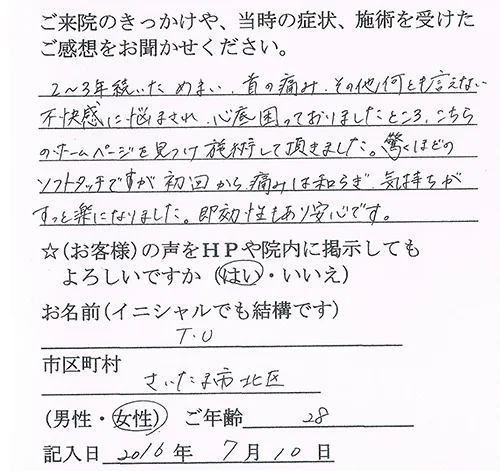 ご来院のきっかけや、当時の症状、施術を受けた
ご感想をお聞かせください。
2～3年続いためまい、首の痛み、その他何とも言えない
不快感に悩まされ、心底困っておりましたところ、こちら
のホームページを見つけ施術して頂きました。驚くほどの
ソフトタッチですが初回から痛みは和らぎ、気持ちが
すっと楽になりました。即効性もあり安心です。
☆(お客様)の声をHPや院内に掲示しても
よろしいですか (はい・いいえ)
お名前(イニシャルでも結構です)
T.U
市区町村
さいたま市北区
(男性・女性) ご年齢 28
記入日 2016年 7月10日